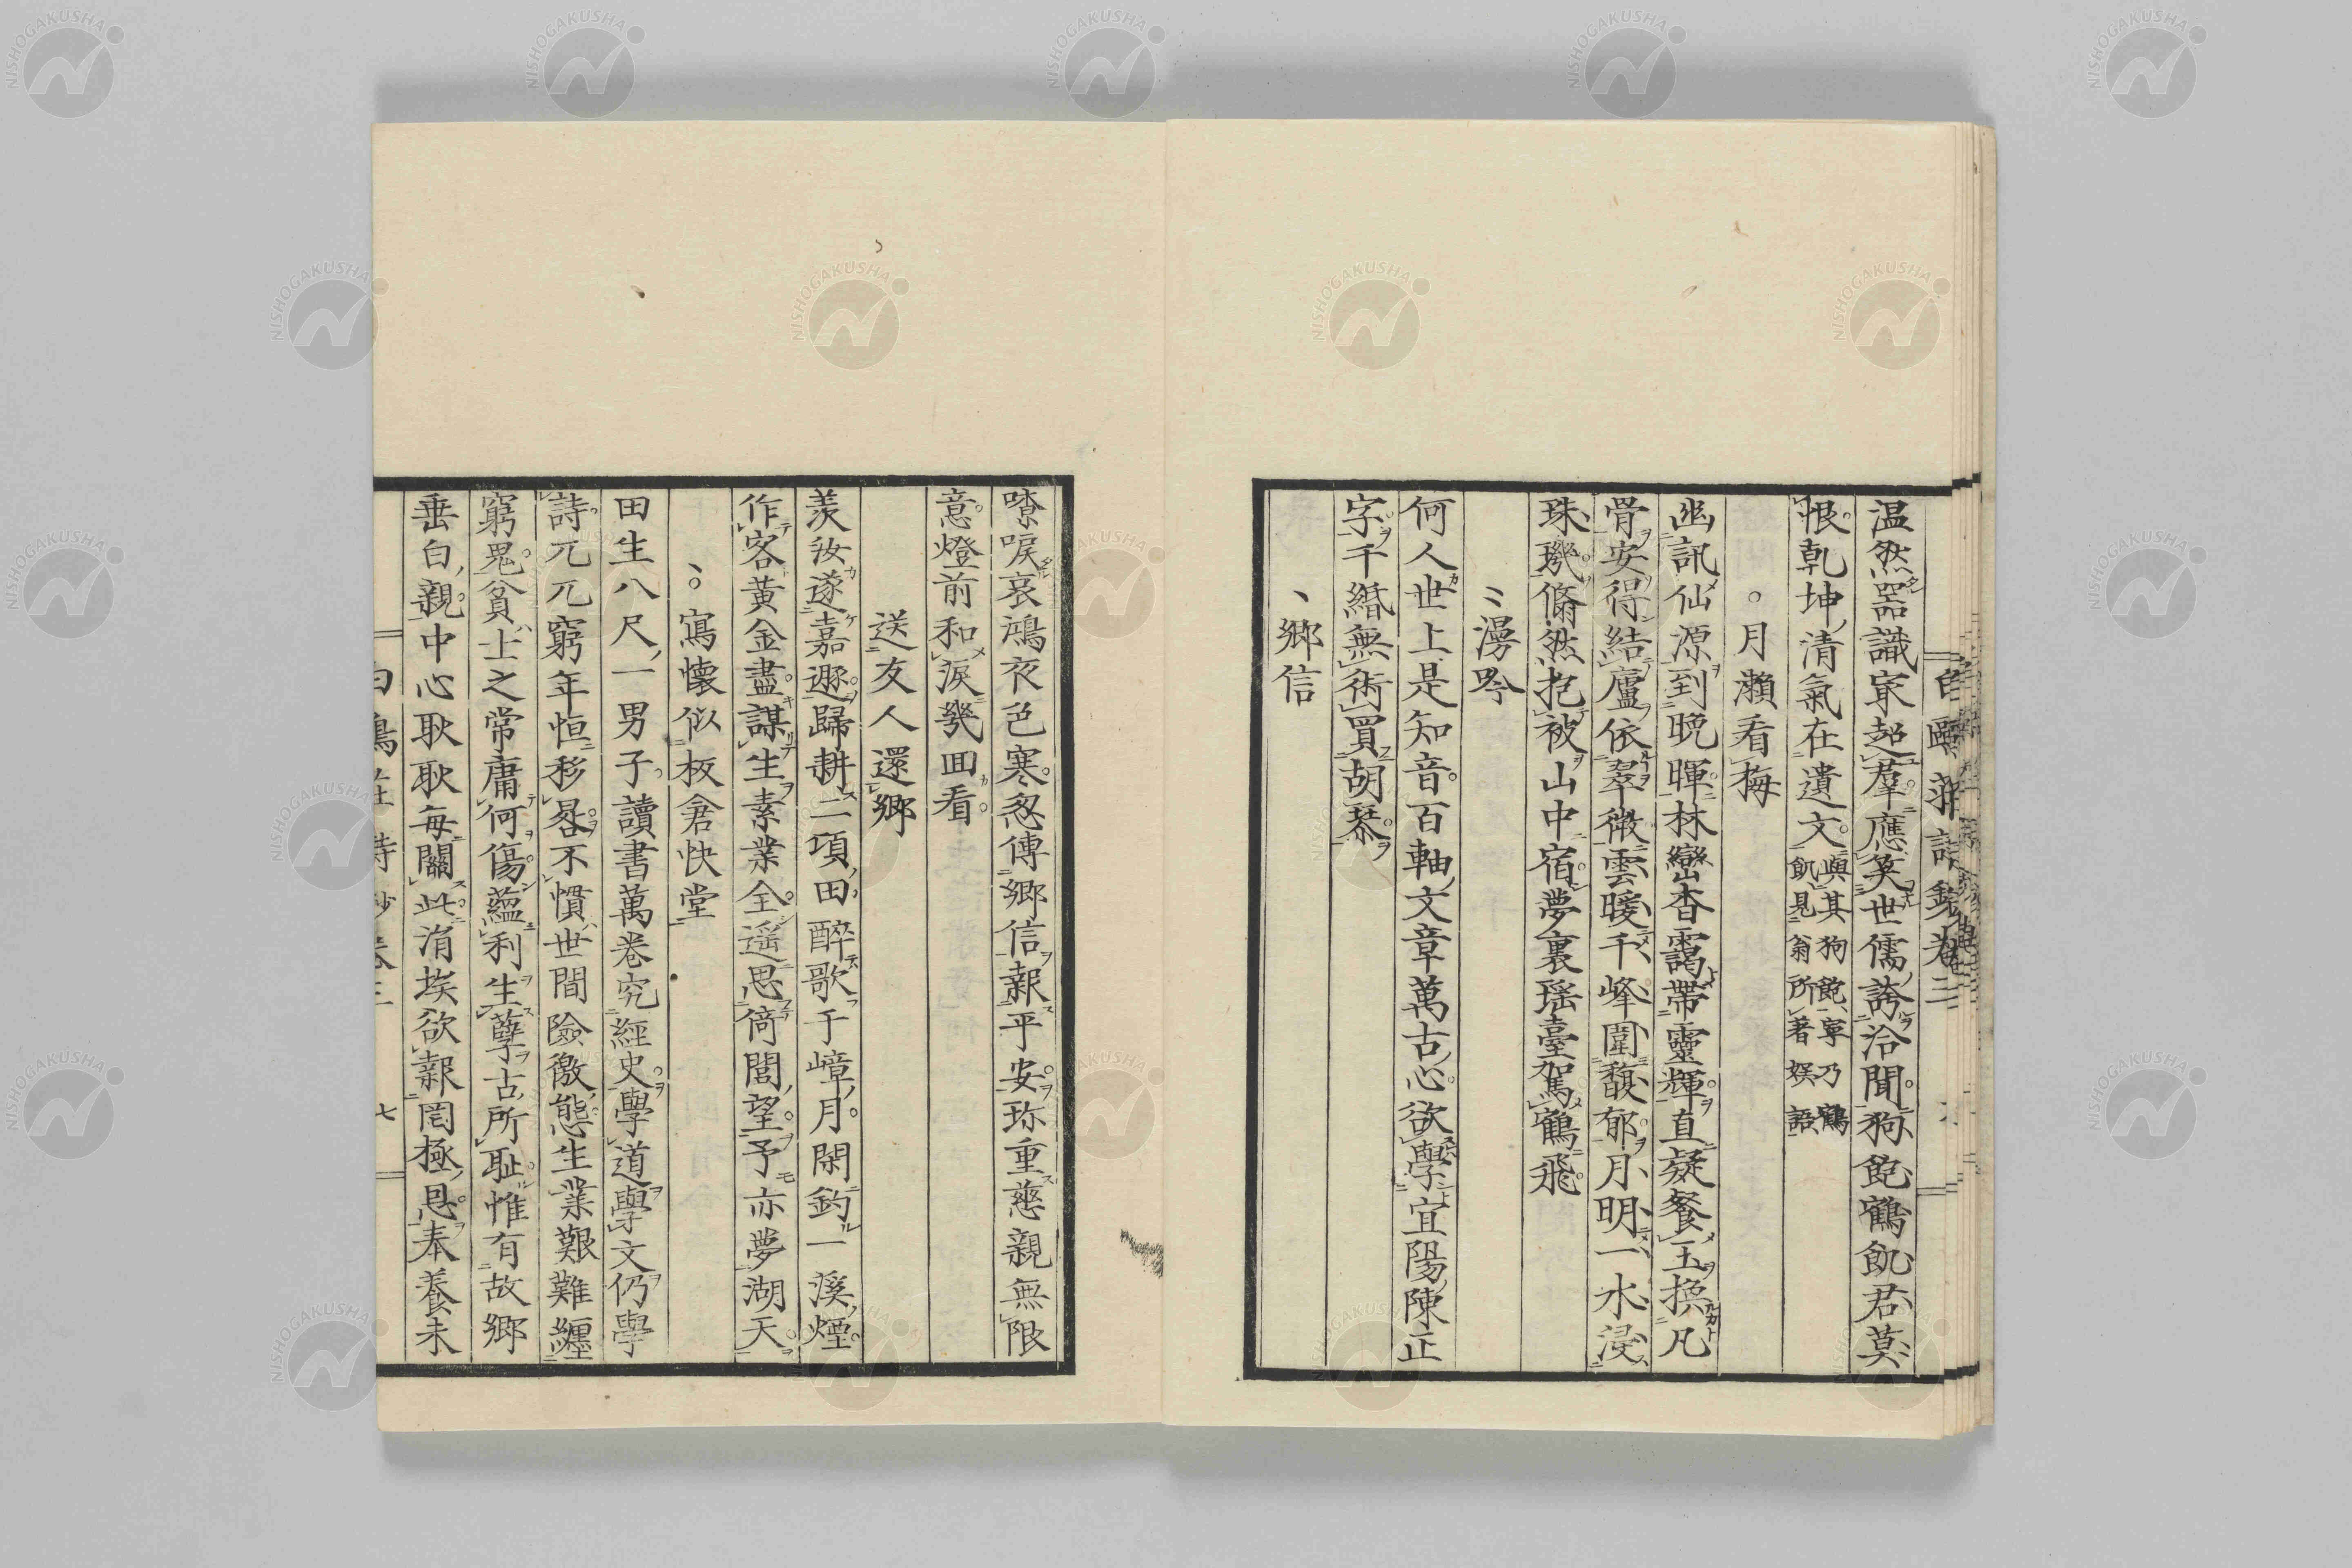 温然器識家超羣應笑世儒誇洽聞狗飽鶴飢君莫
恨乾坤清氣在遺文與其狗飽寧乃鶴
飢見翁所著娯語
月瀬看梅
幽訊仙源到晩暉林巒杳靄帶靈輝直疑餐玉換凡
骨安得結廬依翠微雲暖千峰圍馥郁月明一水浸
珠璣翛然抱被山中宿夢裏瑤臺駕鶴飛
漫吟
何人世上是知音百軸文章萬古心欲學宜陽陳正
字千緡無術買胡琴
鄉信
嘹唳哀鴻夜色寒忽傳鄉信報平安珎重慈親無限
意燈前和淚幾回看
送友人還鄉
羨汝遂嘉遯歸耕二項田醉歌千嶂月閑釣一溪煙
作客黃金盡謀生素業全遥思倚閭望予亦夢湖天
寫懷似板倉快堂
田生八尺一男子讀書萬卷究經史學道學文仍學
詩兀兀窮年恒移晷不慣世間險巇態生業艱難纏
窮鬼貧士之常庸何傷蘊利生孽古所耻惟有故鄉
垂白親中心耿耿每關此涓埃欲報罔極恩奉養未
卷三
七
NISHOGAKUSHA